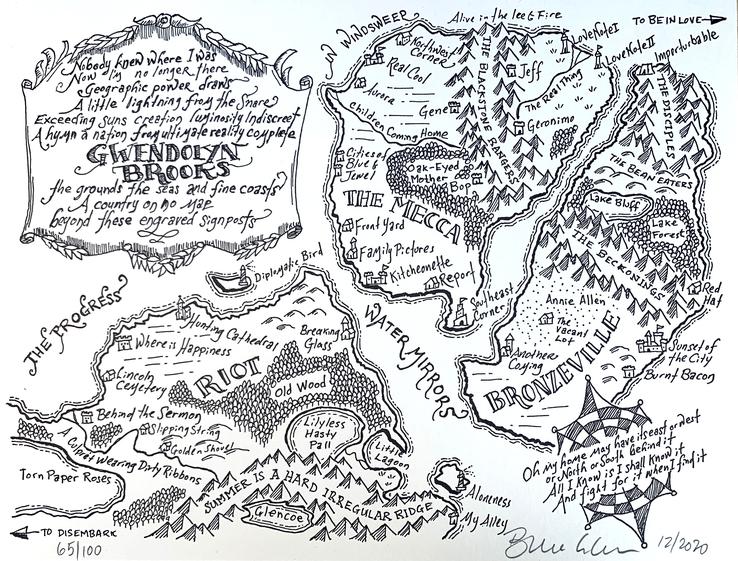 Nobody knew where I was
Now I'm no longer there
Geographic power draws
A little lightning from the snare
Exceeding suns creation luminosity Indiscreet
A hymn a nation from ultimate reality complete
GWENDOLYN
BROOKS
the grounds the seas and fine coasts
A country on no map
beyond these engraved signposts
IN WINDSWEEP
Alive in the Ice & Fire
TO BE IN LOVE
Northwest
Corner
Real Cool
Aurora
Children Coming Home
Gene
THE BLACKSTONE RANGERS
Jeff
The Real Thing
Geronimo
Love Note I
Love Note II
Imperturbable
THE DISCIPLES
Cities of
Blue &
Jewel
Oak-Eyed
Mother
Bop
THE MECCA
Front yard
Family Pictures
Kitchenette
Report
Southeast
Corner
THE BEAN EATERS
Lake Bluff
Lake
Forest
THE BECKONINGS
Red
Hat
Annie Allen
The
Vacant
Lot
Another
Coming
BRONZEVILLE
Sunset of
the City
Burnt Bacon
THE PROGRESS
Diplomatic Bird
WATER MIRRORS
Hunting Cathedral
Where is Happiness
Breaking
Glass
RIOT
Lincoln
Cemetery
Old Wood
Behind the Sermon
Slipping String
Golden Shovel
A Culprit Wearing Dirty Ribbons
Torn Paper Roses
Lilyless
Hasty
Fall
Little
Lagoon
SUMMER IS A HARD IRREGULAR RIDGE
Glencoe
Aloneness
My Alley
TO DISEMBARK
65/100
Oh my home may have its east or west
or North or South behind it
All I know is I shall know it
And fight for it when I find it
12/2020